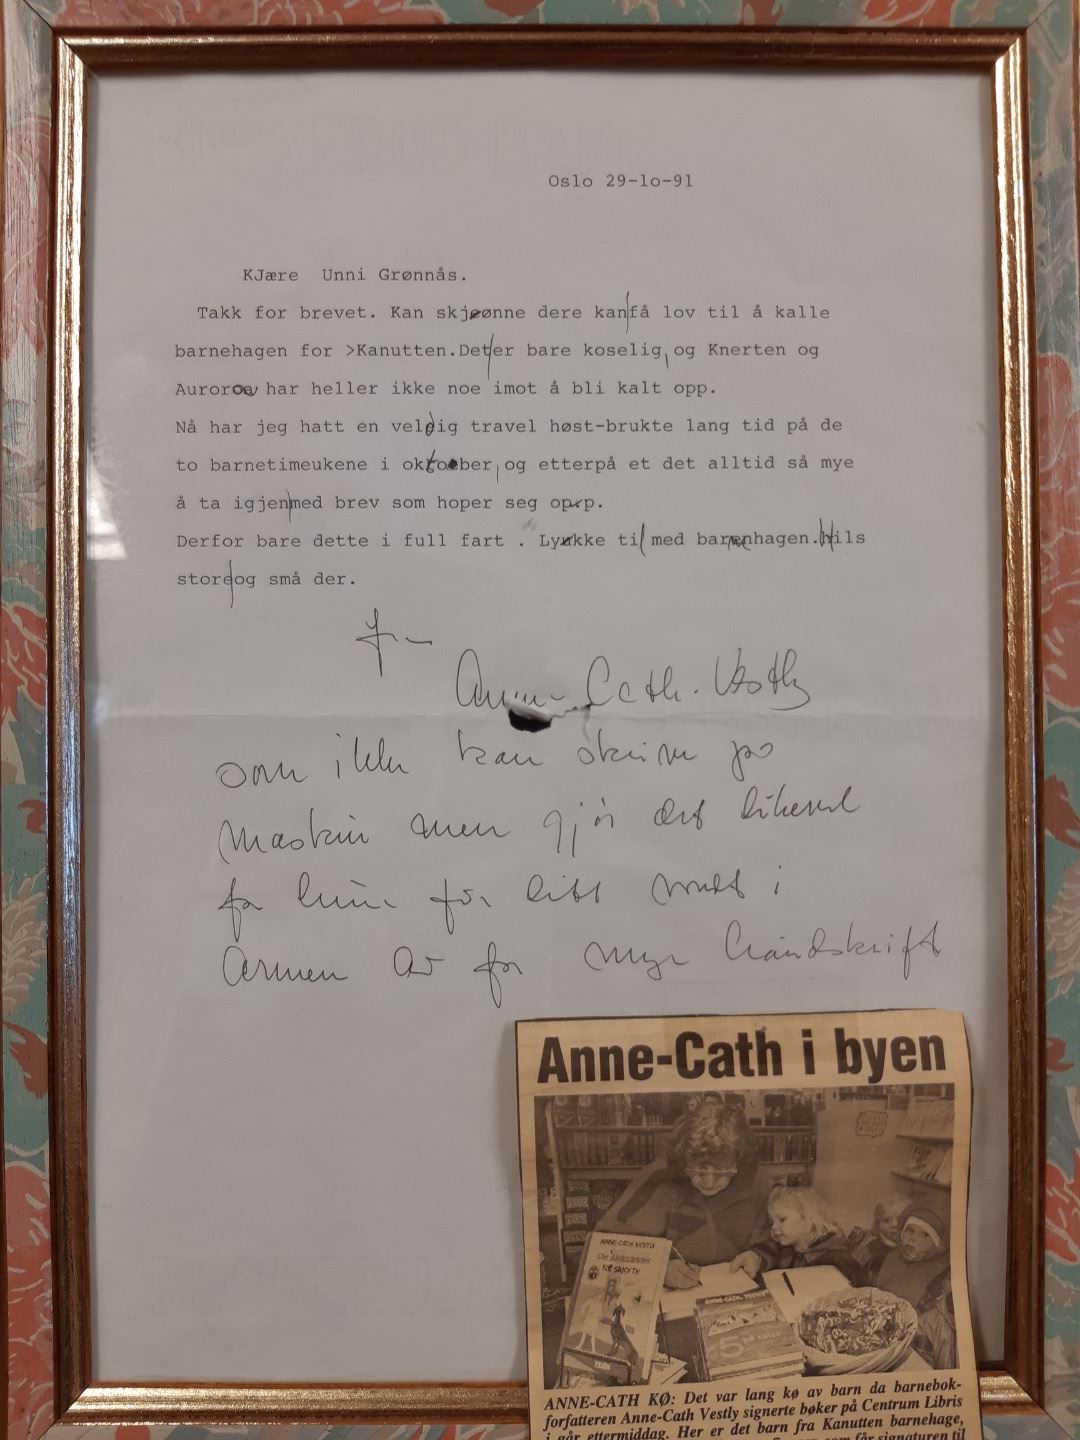 Oslo 29-lo-91
KJære Unni Grønnås.
Takk for brevet. Kan skjøønne dere kan få lov til å kalle
barnehagen for >Kanutten.Det er bare koselig, og Knerten og
Auroroa har heller ikke noe imot å bli kalt opp.
Nå har jeg hatt en veldig travel høst-brukte lang tid på de
to barnetimeukene i oktober, og etterpå et det alltid så mye
å ta igjen med brev som hoper seg opp.
Derfor bare dette i full fart . Lykke til med barnehagen. Hils
store og små der.
fra
Anne-Cath. Vestly
som ikke kan skrive på
maskin men gjør det likevel
for litt vondt i
armen av for mye håndskrift
Anne-Cath i byen
ANNE-CATH. VESTLY
Ole Aleksander
får skjorte
ANNE-CATH. VESTLY
5
ANNE-CATH KØ: Det var lang kø av barn da barnebok-
forfatteren Anne-Cath Vestly signerte bøker på Centrum Libris
i går ettermiddag. Her er det barn fra Kanutten barnehage,
som får signaturen til